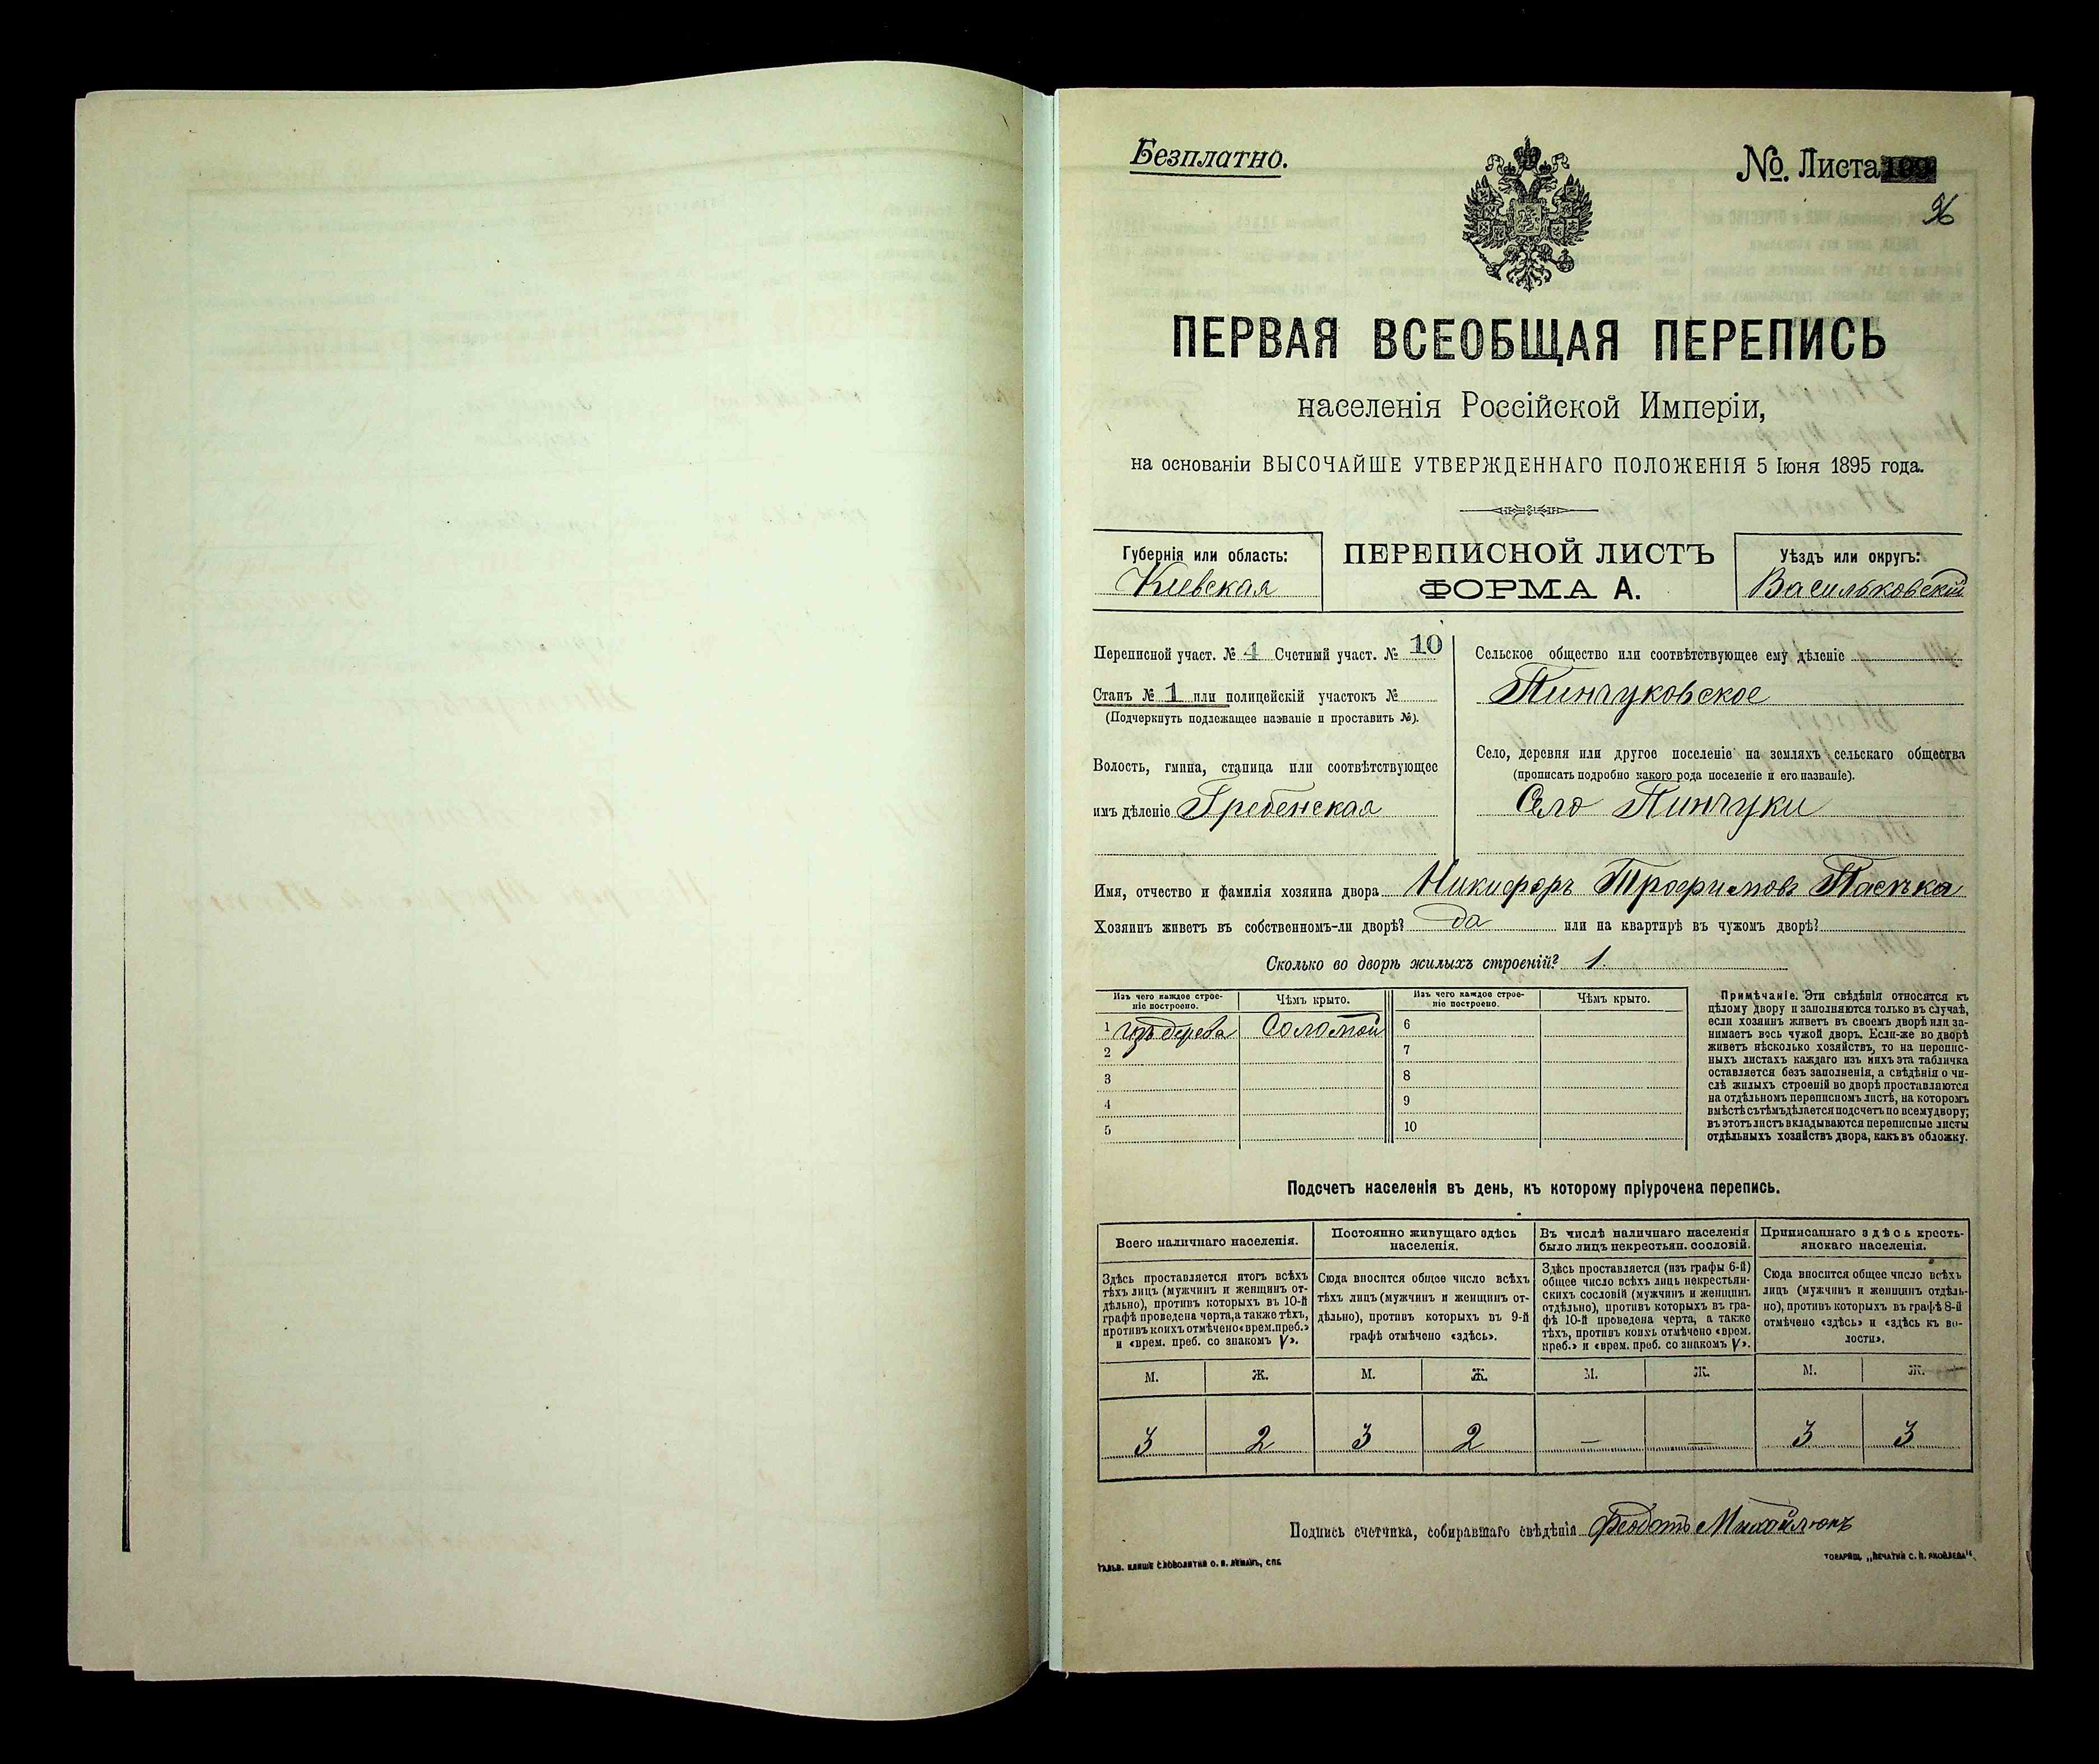 Безплатно.
№. Листа
96
ПЕРВАЯ ВСЕОБЩАЯ ПЕРЕПИСЬ
населенія Россійской Имперіи,
на основаніи ВЫСОЧАЙШЕ УТВЕРЖДЕННАГО ПОЛОЖЕНІЯ 5 Іюня 1895 года.
Губернія или область:
Кіевская
ПЕРЕПИСНОЙ ЛИСТЪ
ФОРМА А.
Уѣздъ или округъ:
Васильковскій
Переписной участ. № 4 Счетный участ. № 10
Станъ № 1 или полицейскій участокъ №
(Подчеркнуть подлежащее названіе и проставить №).
Волость, гмина, станица или соотвѣтствующее
имъ дѣленіе Гребенская
Сельское общество или соотвѣтствующее ему дѣленіе
Пинчуковское
Село, деревня или другое поселеніе на земляхъ сельскаго общества
(прописать подробно какого рода поселеніе и его названіе).
Село Пинчуки
Имя, отчество и фамилія хозяина двора Никифоръ Трофимовъ
Хозяинъ живетъ въ собственномъ-ли дворѣ? да или на квартирѣ въ чужомъ дворѣ?
Сколько во дворѣ жилыхъ строеній? 1.
Изъ чего каждое строе-
ніе построено.
Чѣмъ крыто.
Изъ чего каждое строе-
ніе построено.
Чѣмъ крыто.
1 изъ дерева Соломой 6
2 7
3 8
4 9
5 10
Примѣчаніе. Эти свѣдѣнія относятся къ
цѣлому двору и заполняются только въ случаѣ,
если хозяинъ живетъ въ своемъ дворѣ или за-
нимаетъ весь чужой дворъ. Если-же во дворѣ
живетъ нѣсколько хозяйствъ, то на перепис-
ныхъ листахъ каждаго изъ нихъ эта табличка
оставляется безъ заполненія, а свѣдѣнія о чи-
слѣ жилыхъ строеній во дворѣ проставляются
на отдѣльномъ переписномъ листѣ, на которомъ
вмѣстѣ съ тѣмъ дѣлается подсчетъ по всему двору;
въ этотъ листъ вкладываются переписные листы
отдѣльныхъ хозяйствъ двора, какъ въ обложку.
Подсчетъ населенія въ день, къ которому пріурочена перепись.
Всего наличнаго населенія.
Постоянно живущаго здѣсь
населенія.
Въ числѣ наличнаго населенія
было лицъ некрестьян. сословій.
Приписаннаго здѣсь кресть-
янскаго населенія.
Здѣсь проставляется итогъ всѣхъ
тѣхъ лицъ (мужчинъ и женщинъ от-
дѣльно), противъ которыхъ въ 10-й
графѣ проведена черта, а также тѣхъ,
противъ коихъ отмѣчено «врем. преб.»
и «врем. преб. со знакомъ V».
Сюда вносится общее число всѣхъ
тѣхъ лицъ (мужчинъ и женщинъ от-
дѣльно), противъ которыхъ въ 9-й
графѣ отмѣчено «здѣсь».
Здѣсь проставляется (изъ графы 6-й)
общее число всѣхъ лицъ некрестьян-
скихъ сословій (мужчинъ и женщинъ
отдѣльно), противъ которыхъ въ гра-
фѣ 10-й проведена черта, а также
тѣхъ, противъ коихъ отмѣчено «врем.
преб.» и «врем. преб. со знакомъ V».
Сюда вносится общее число всѣхъ
лицъ (мужчинъ и женщинъ отдѣль-
но), противъ которыхъ въ графѣ 8-й
отмѣчено «здѣсь» и «здѣсь къ во-
лости».
М. Ж. М. Ж. М. Ж. М. Ж.
3 2 3 2 — — 3 3
Подпись счетчика, собиравшаго свѣдѣнія Феодотъ Михайлюкъ
ГАЛЬВ. КЛИШЕ СЛОВОЛИТНИ О. И. ЛЕМАНЪ, СПБ.
ТОВАРИЩ. „ПЕЧАТНИ С. П. ЯКОВЛЕВА“.